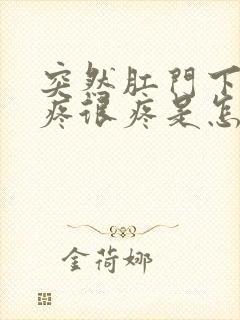 突然肛門下
疼很疼是怎
金荷娜